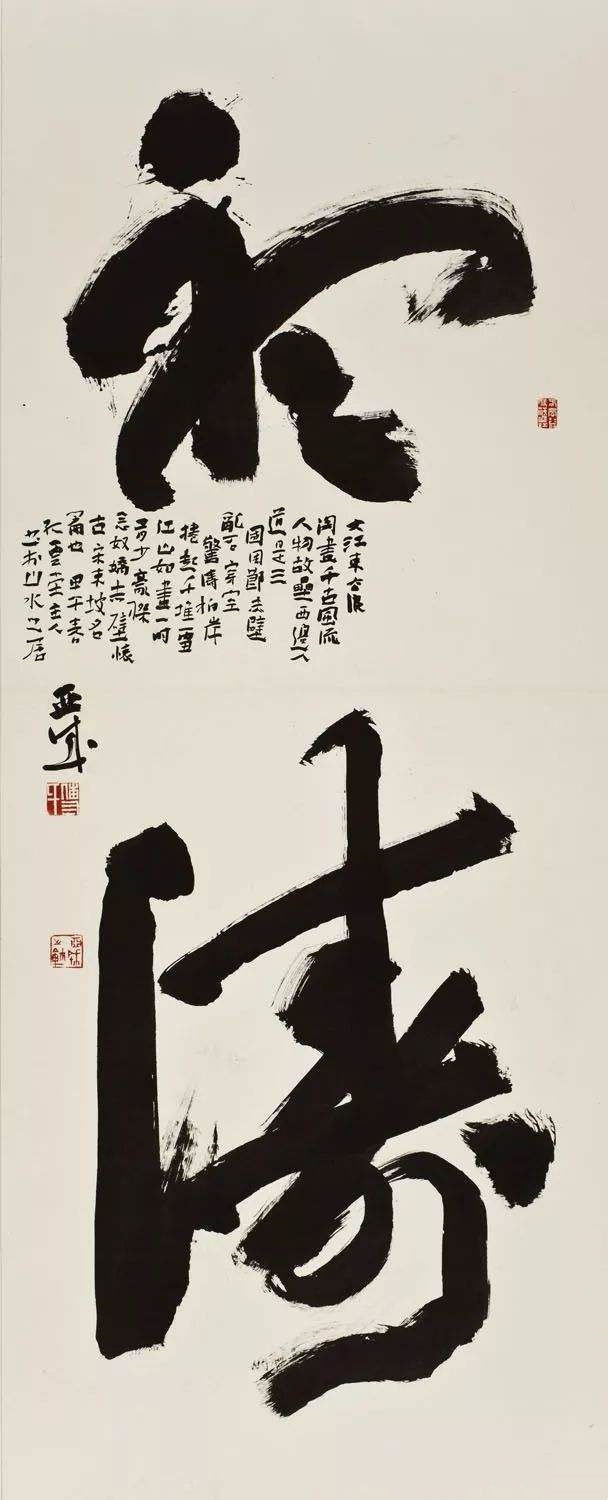 濤
大江東去浪
淘盡千古風流
人物故壘西邊人
道是三
國周郎赤壁
亂石穿空
驚濤拍岸
捲起千堆雪
江山如畫一時
多少豪傑
念奴嬌赤壁懷
古宋東坡名
篇也甲午春
雲堂主人
於山水之居
亚成